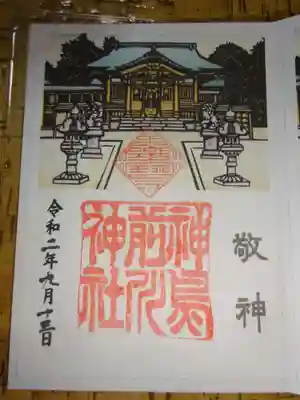 敬神
神鳥前川神社
令和二年九月十三日